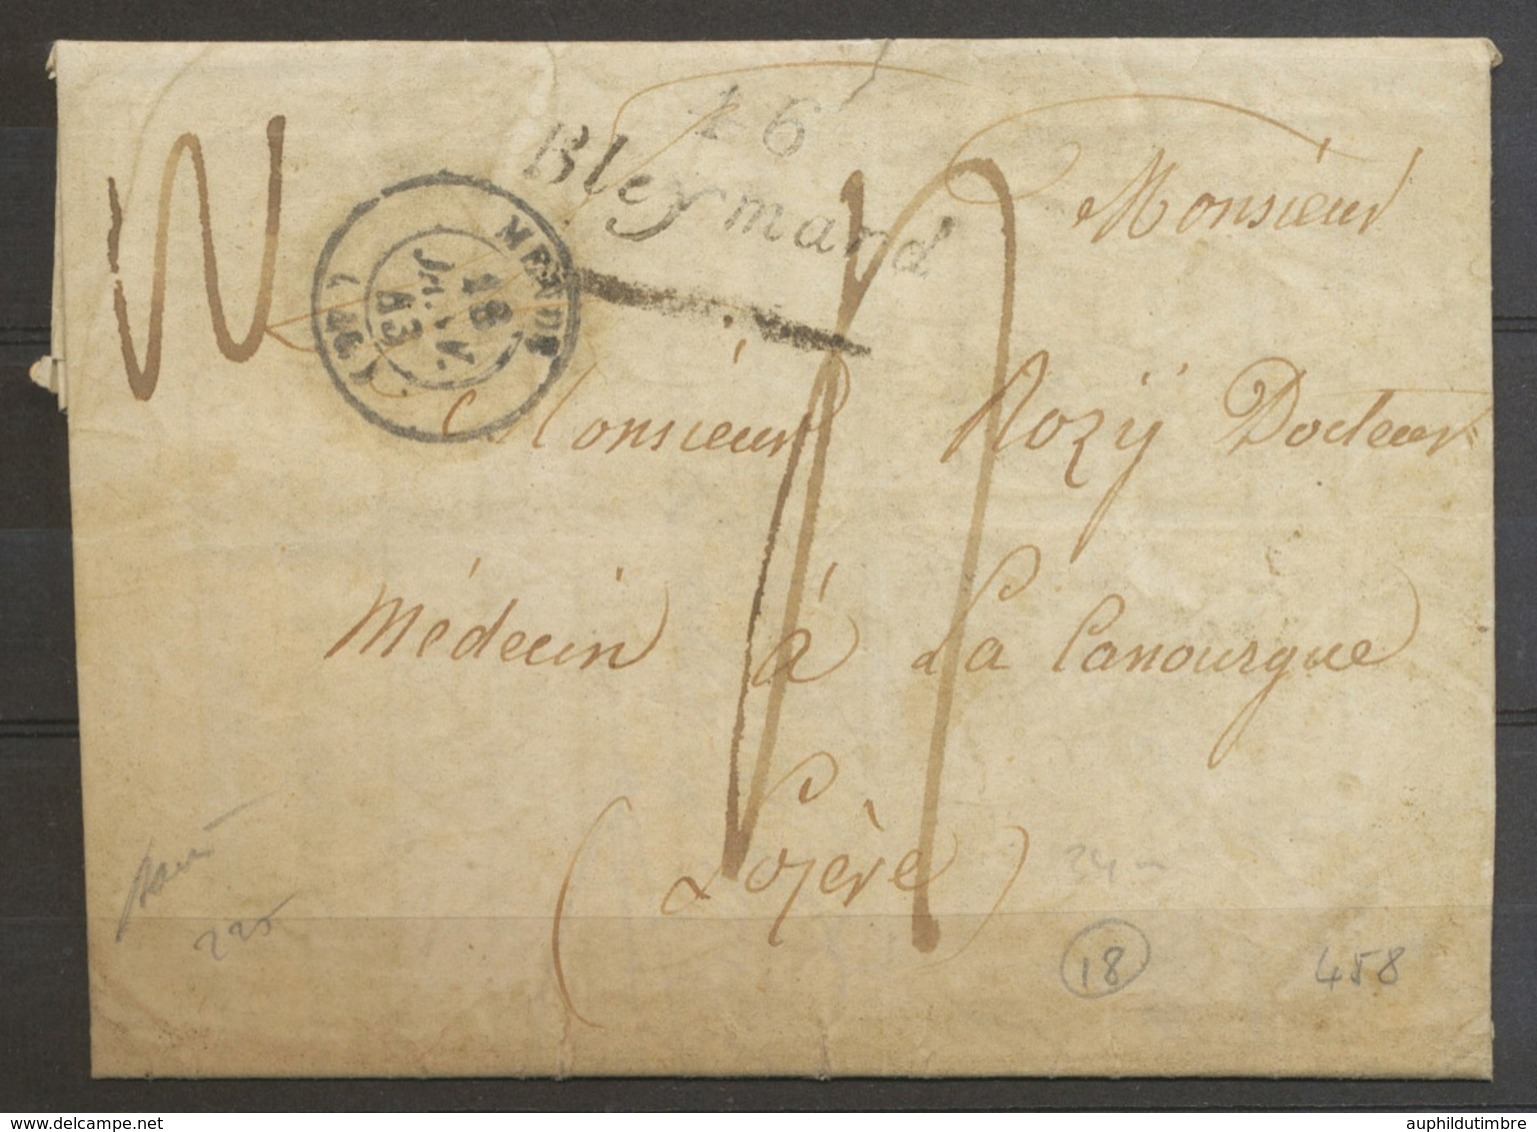 46
Bleymard
MENDE
18
JANV.
43
(46)
Monsieur
Monsieur Rozÿ Docteur
Médecin à La Canourgue
(Lozère)
34 -
225
18
458
auphildutimbre